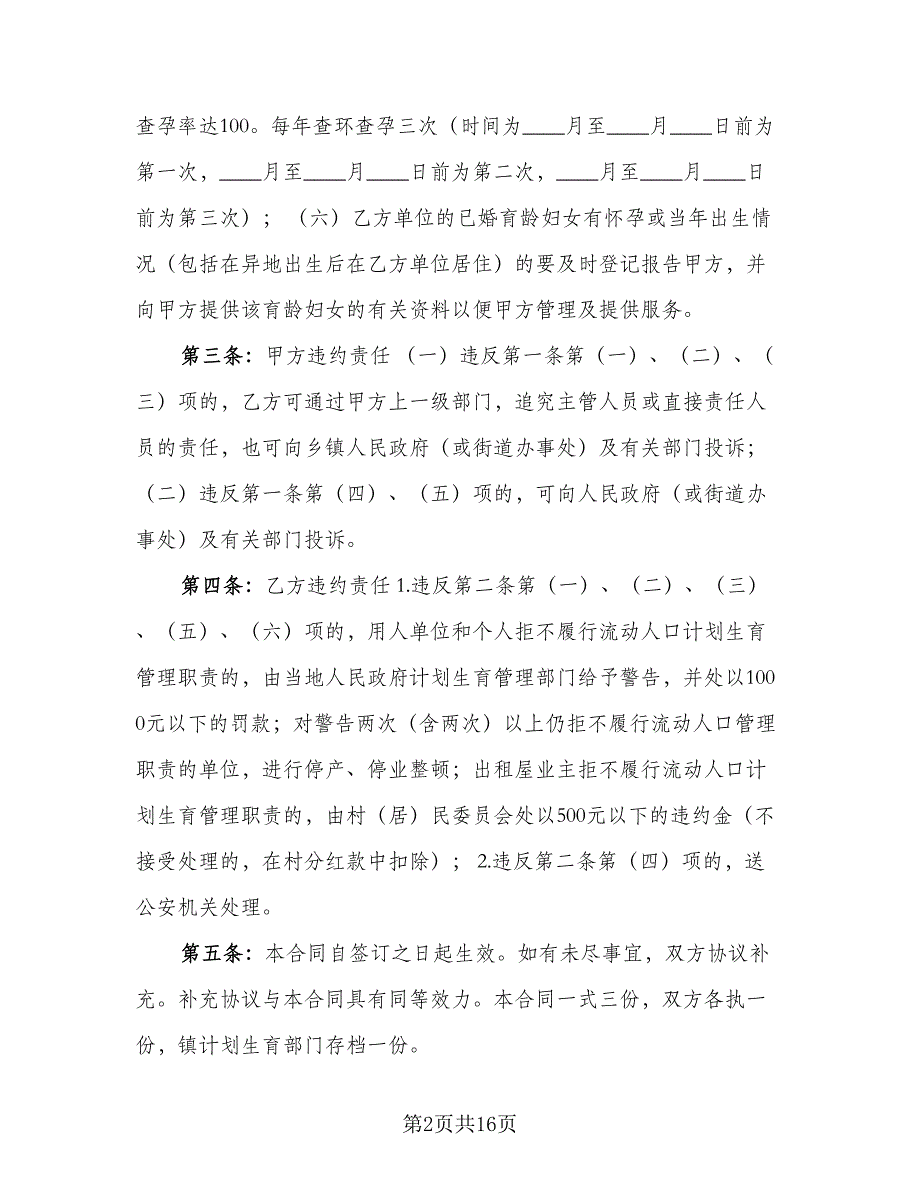 查孕率达100。每年查环查孕三次（时间为____月至____月____日前为
第一次，____月至____月____日前为第二次，____月至____月____日
前为第三次）； （六）乙方单位的已婚育龄妇女有怀孕或当年出生情
况（包括在异地出生后在乙方单位居住）的要及时登记报告甲方，并
向甲方提供该育龄妇女的有关资料以便甲方管理及提供服务。
第三条：甲方违约责任 （一）违反第一条第（一）、（二）、（
三）项的，乙方可通过甲方上一级部门，追究主管人员或直接责任人
员的责任，也可向乡镇人民政府（或街道办事处）及有关部门投诉；
（二）违反第一条第（四）、（五）项的，可向人民政府（或街道办
事处）及有关部门投诉。
第四条：乙方违约责任 1.违反第二条第（一）、（二）、（三）
、（五）、（六）项的，用人单位和个人拒不履行流动人口计划生育
管理职责的，由当地人民政府计划生育管理部门给予警告，并处以100
0元以下的罚款；对警告两次（含两次）以上仍拒不履行流动人口管理
职责的单位，进行停产、停业整顿；出租屋业主拒不履行流动人口计
划生育管理职责的，由村（居）民委员会处以500元以下的违约金（不
接受处理的，在村分红款中扣除）； 2.违反第二条第（四）项的，送
公安机关处理。
第五条：本合同自签订之日起生效。如有未尽事宜，双方协议补
充。补充协议与本合同具有同等效力。本合同一式三份，双方各执一
份，镇计划生育部门存档一份。
第2页共16页